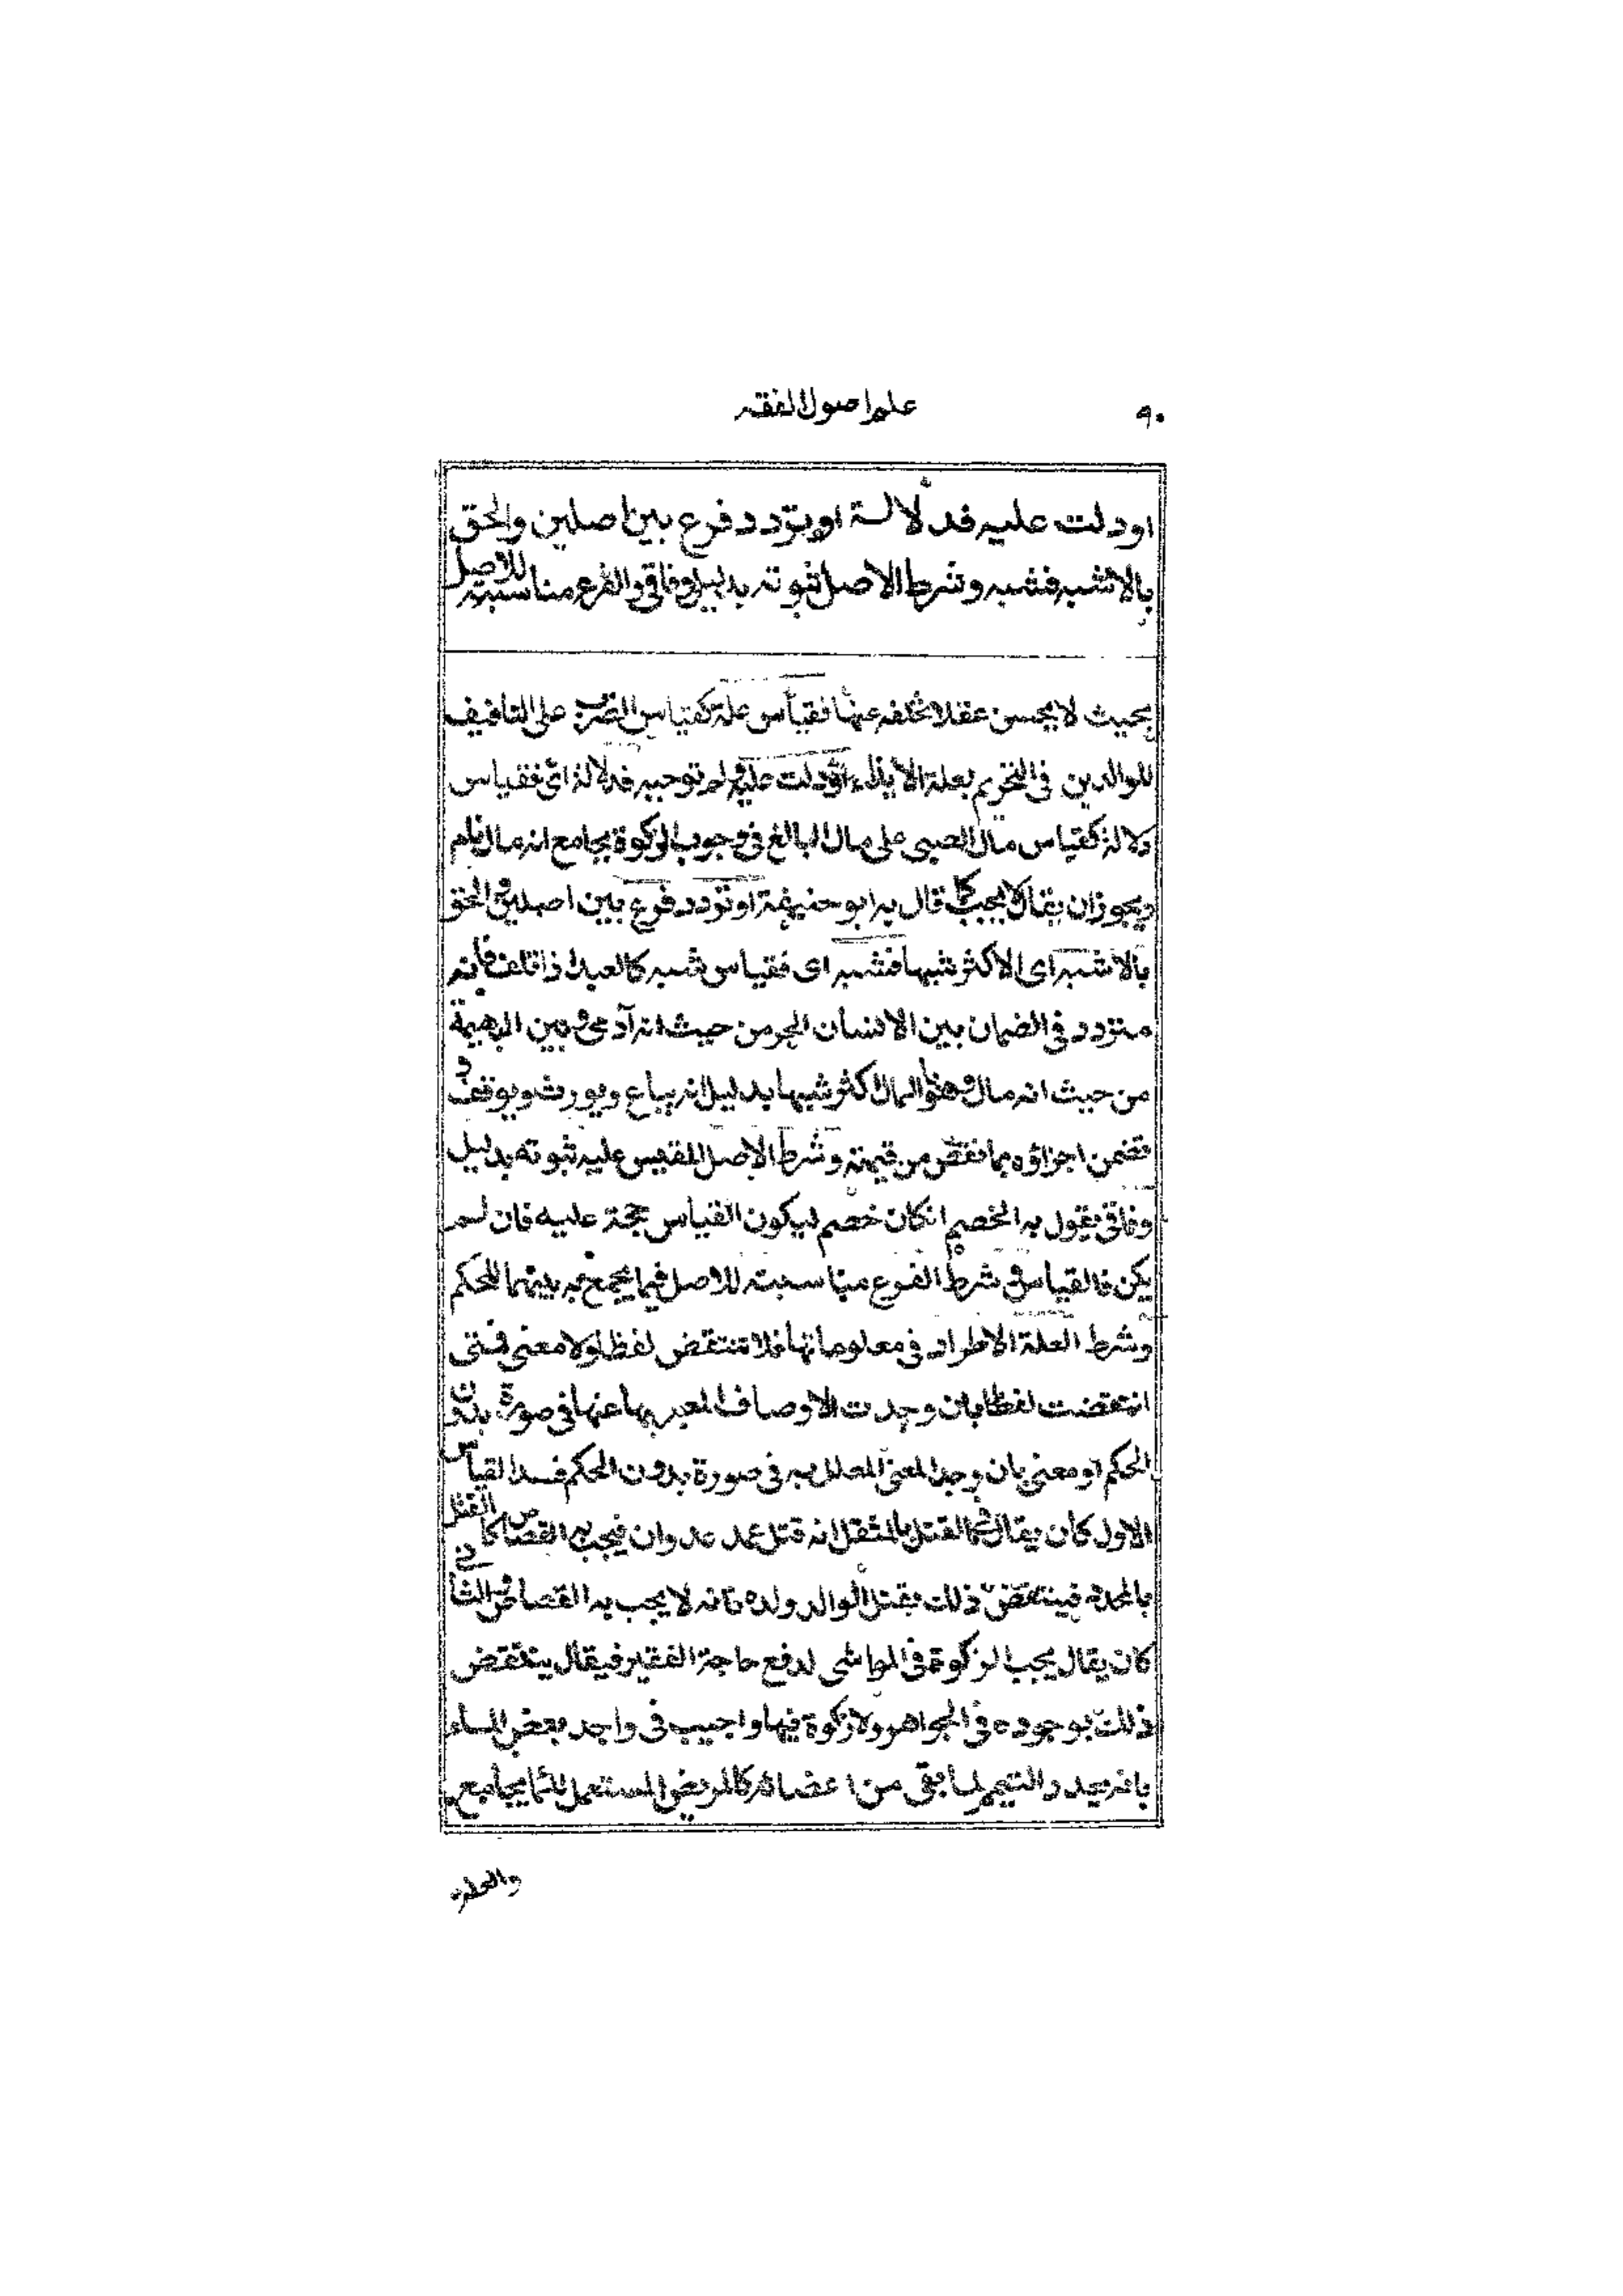 ٩٠
علم اصول الفقه
او دلت عليه فدلالة او تردد فرع بين اصلين والحق
بالاشبه فشبه وشرط الاصل ثبوته بدليل وفاقي والفرع مناسبته للاصل
بحيث لا يحسن عقلا تخلفه عنها فقياس علة كقياس الضرب على التافيف
للوالدين في التحريم بعلة الايذاء او دلت عليه ولم توجبه فدلالة اى فقياس
دلالة كقياس مال الصبي على مال البالغ في وجوب الزكوة بجامع انه مال نام
ويجوز ان يقال لا يجب كما قال به ابو حنيفة او تردد فرع بين اصلين والحق
بالاشبه اى الاكثر شبها فشبه اى فقياس شبه كالعبد اذا تلف فانه
متردد في الضمان بين الانسان الحر من حيث انه آدمي وبين البهيمة
من حيث انه مال وهو بالمال اكثر شبها بدليل انه يباع ويورث ويوقف و
تضمن اجزاؤه بما نقص من قيمته وشرط الاصل المقيس عليه ثبوته بدليل
وفاقي يقول به الخصم ان كان خصم ليكون القياس حجة عليه فان لم
يكن فالقياس وشرط الفرع مناسبته للاصل فيما يجمع به بينهما للحكم
وشرط العلة الاطراد في معلوماتها فلا تنتقض لفظا ولا معنى فمتى
انتقضت لفظا بان وجدت الاوصاف المعبر بها عنها في صورة بدون
الحكم او معنى بان وجد المعنى المعلل به في صورة بدون الحكم فسد القياس
الاول كان يقال في القتل بالمثقل انه قتل عمد عدوان فيجب به القصاص كالقتل
بالمحدد فينتقض ذلك بقتل الوالد ولده فانه لا يجب به القصاص والثاني
كان يقال يجب الزكوة في المواشي لدفع حاجة الفقير فيقال ينتقض
ذلك بوجوده في الجواهر ولا زكوة فيها واجيب في واجد بعض الماء
بانه يجدد التيمم لما بقى من اعضائه كالمريض المستعمل للماء بجامع